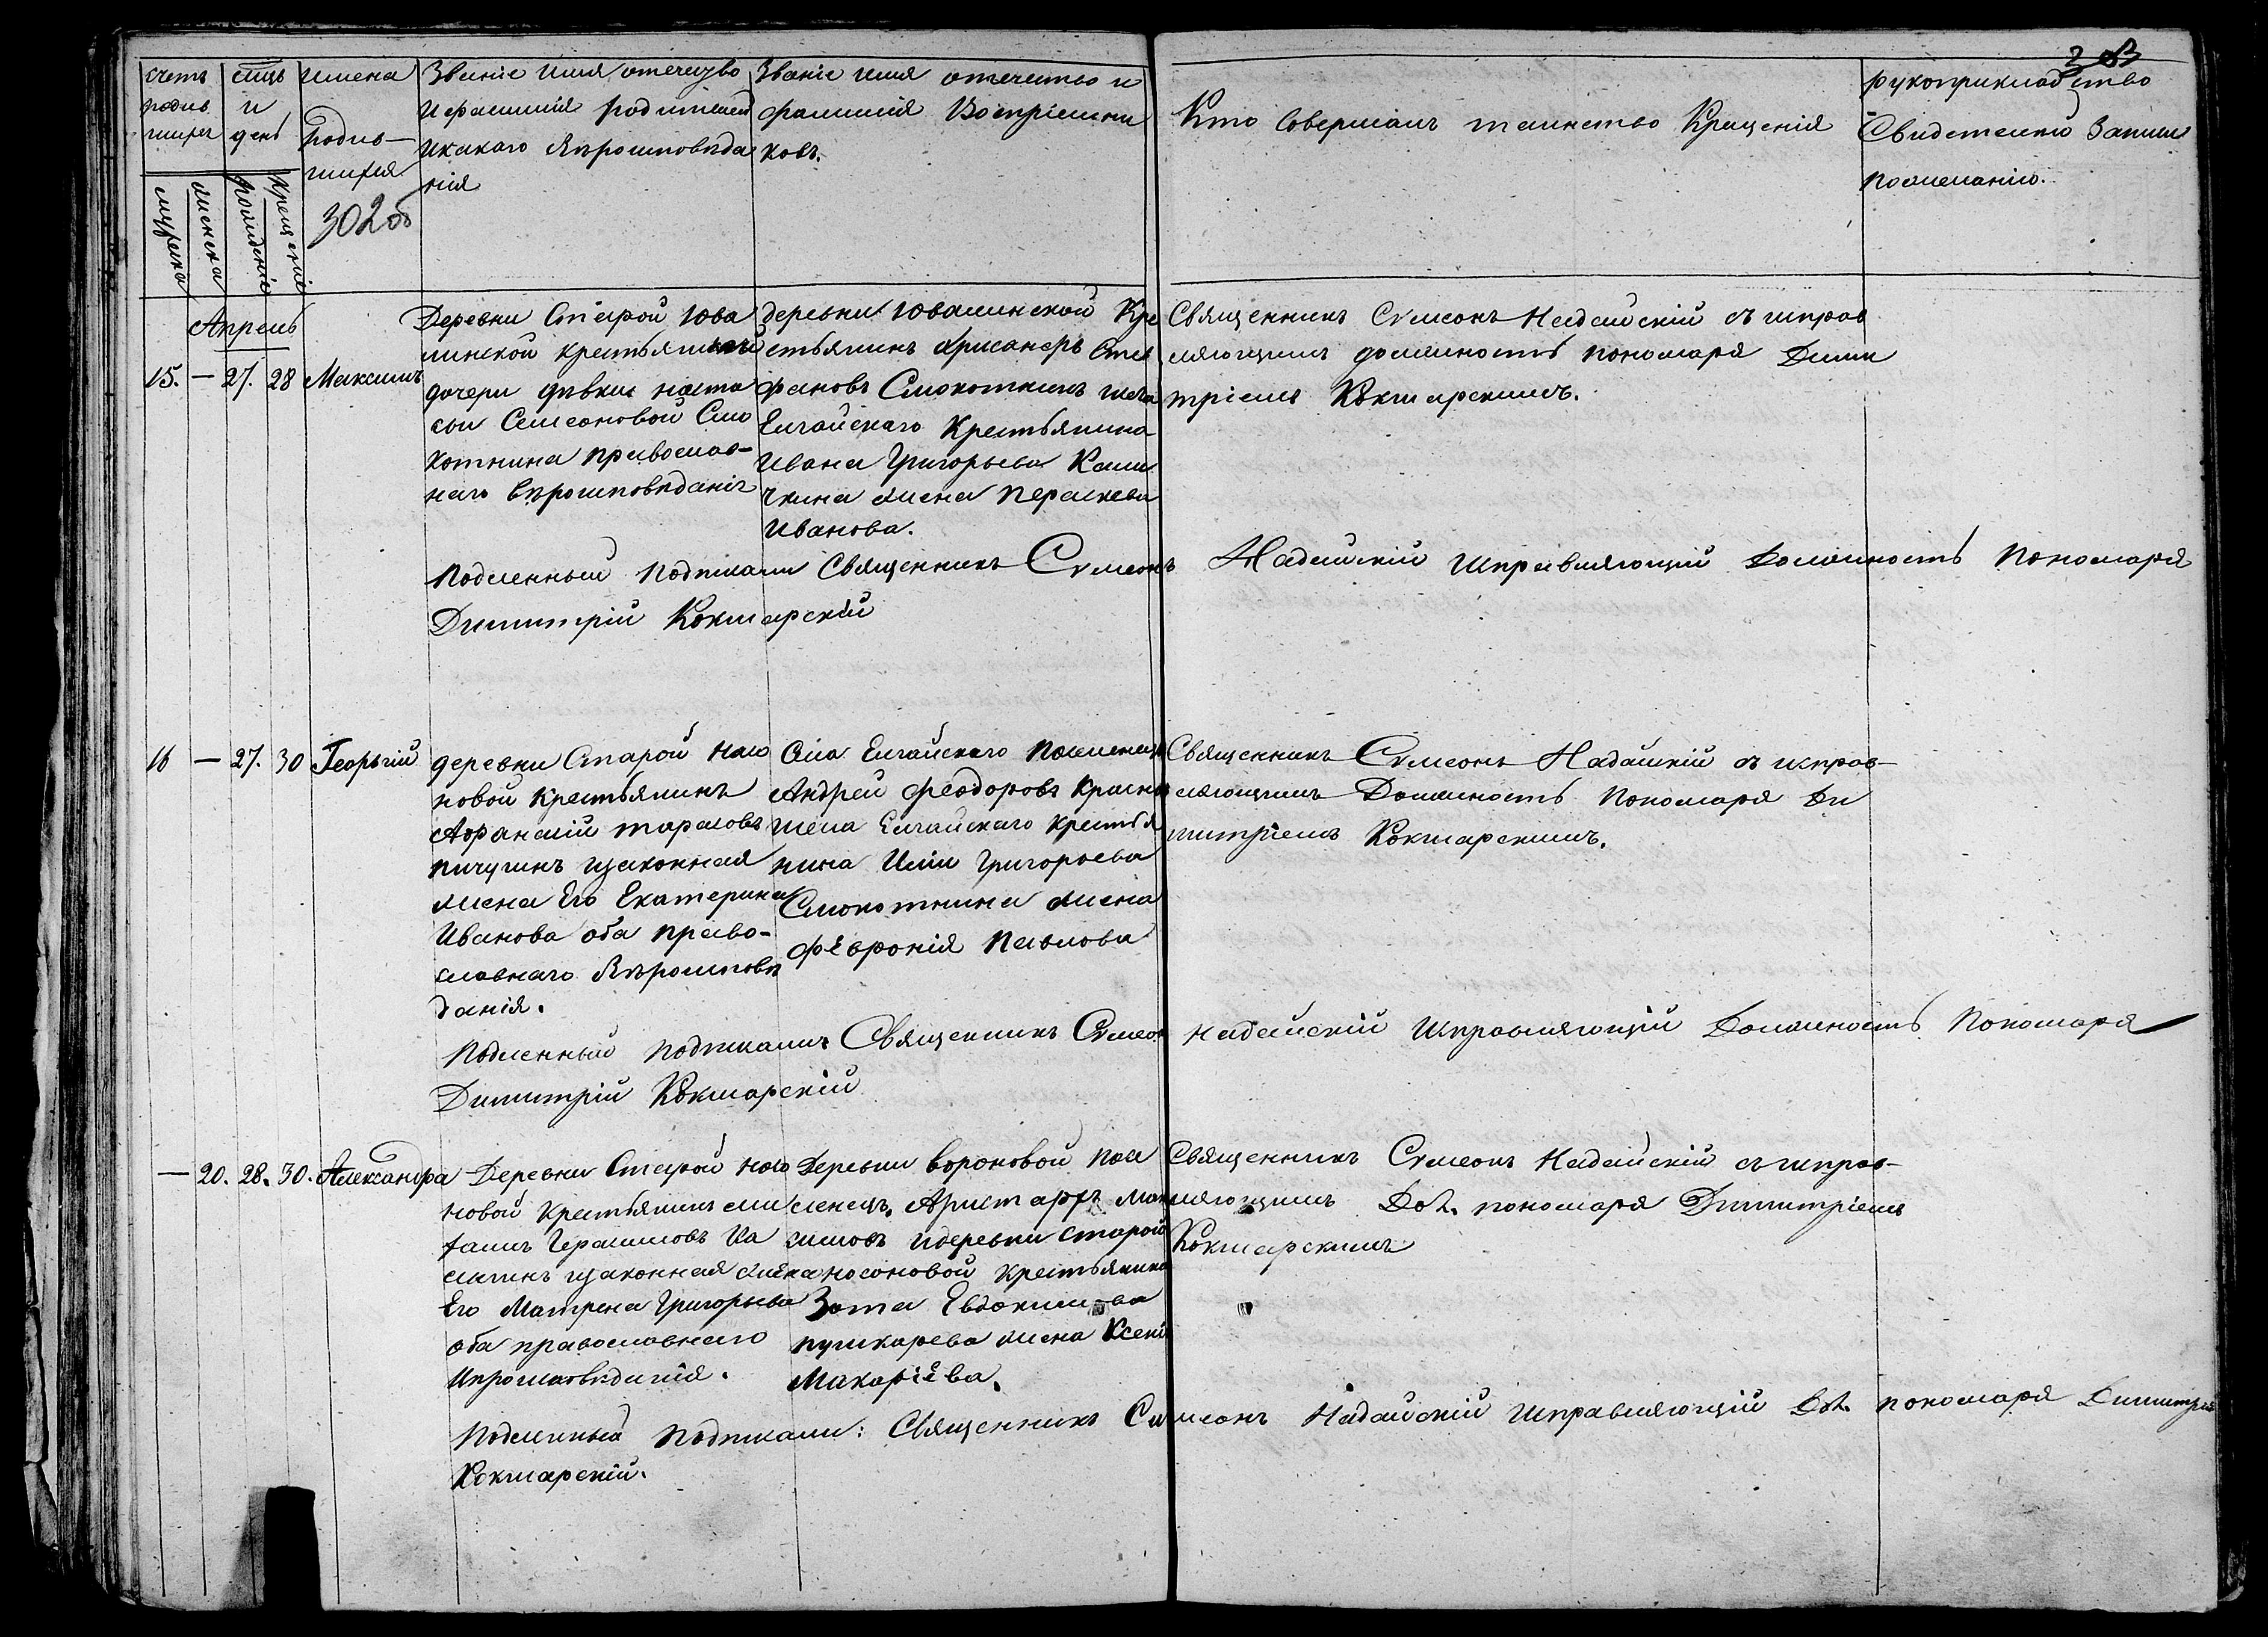 счетъ
родив
шихся
мужеска
женска
мцъ
и
день
рожденiе
крещенiе
имена
родив-
шихся
302 об
Званiе имя отечество
и фамилiя родителей
и какого вѣроисповѣда
нiя
Званiе имя отечество и
фамилiя Воспрiемни
ковъ.
Кто Совершалъ таинство Крещенiя
рукоприкладство
Свидетелей записи
по желанiю.
Апрель
15. — 27. 28 Максимъ
Деревни Старой Юва
линской крестьянской
дочери девки Наста
сьи Семеновой Смо
котнина православ-
наго вѣроисповѣданiя
деревни Ювалинской Кре
стьянинъ Хрисанфъ Сте
фановъ Смокотнинъ и села
Елгайскаго Крестьянина
Ивана Григорьева Кали
чкина жена Параскева
Иванова.
Священникъ Сѵмеонъ Надеинскiй съ исправ
ляющимъ должность пономаря Дими
трiемъ Кокшарскимъ.
Подленный подписали Священникъ Сѵмеонъ Надеинскiй исправляющiй должность пономаря
Димитрiй Кокшарскiй
16 — 27. 30 Георьгiй
деревни Старой Насо
новой Крестьянинъ
Афанасiй тарасовъ
пичугинъ изаконная
жена Его Екатерина
Иванова оба право-
славнаго вѣроисповѣ
данiя.
Села Елгайскаго Поселенецъ
Андрей феодоровъ
села Елгайскаго Крестья
нина Илiи Григорьева
Смокотнина жена
феvронiя Павлова
Священникъ Сѵмеонъ Надаинскiй съ исправ-
ляющимъ Должность Пономаря Ди
митрiемъ Кокшарскимъ.
Подленный подписали Священникъ Сѵмеонъ Надеинскiй Исправляющiй Должность Пономаря
Димитрiй Кокшарскiй
— 20. 28. 30. Александра
Деревни Старой Насо
новой крестьянинъ
Герасимовъ Ка
изаконная жена
Его Матрена Григорьева
оба православнаго
Ипроисповѣданiя.
Деревни вороновой Посе
ленецъ. Аристархъ Мак
симовъ идеревни Старой
носоновой Крестьянина
Зота Евдокимова
пушкарева жена Ксенiя
Макарiева.
Священникъ Сѵмеонъ Надеинскiй съ исправ-
ляющимъ Дол. пономаря Димитрiемъ
Кокшарскимъ
Подлинный подписали: Священникъ Сѵмеонъ Надаинскiй исправляющiй Дол. пономаря Димитрiй
Кокшарскiй.